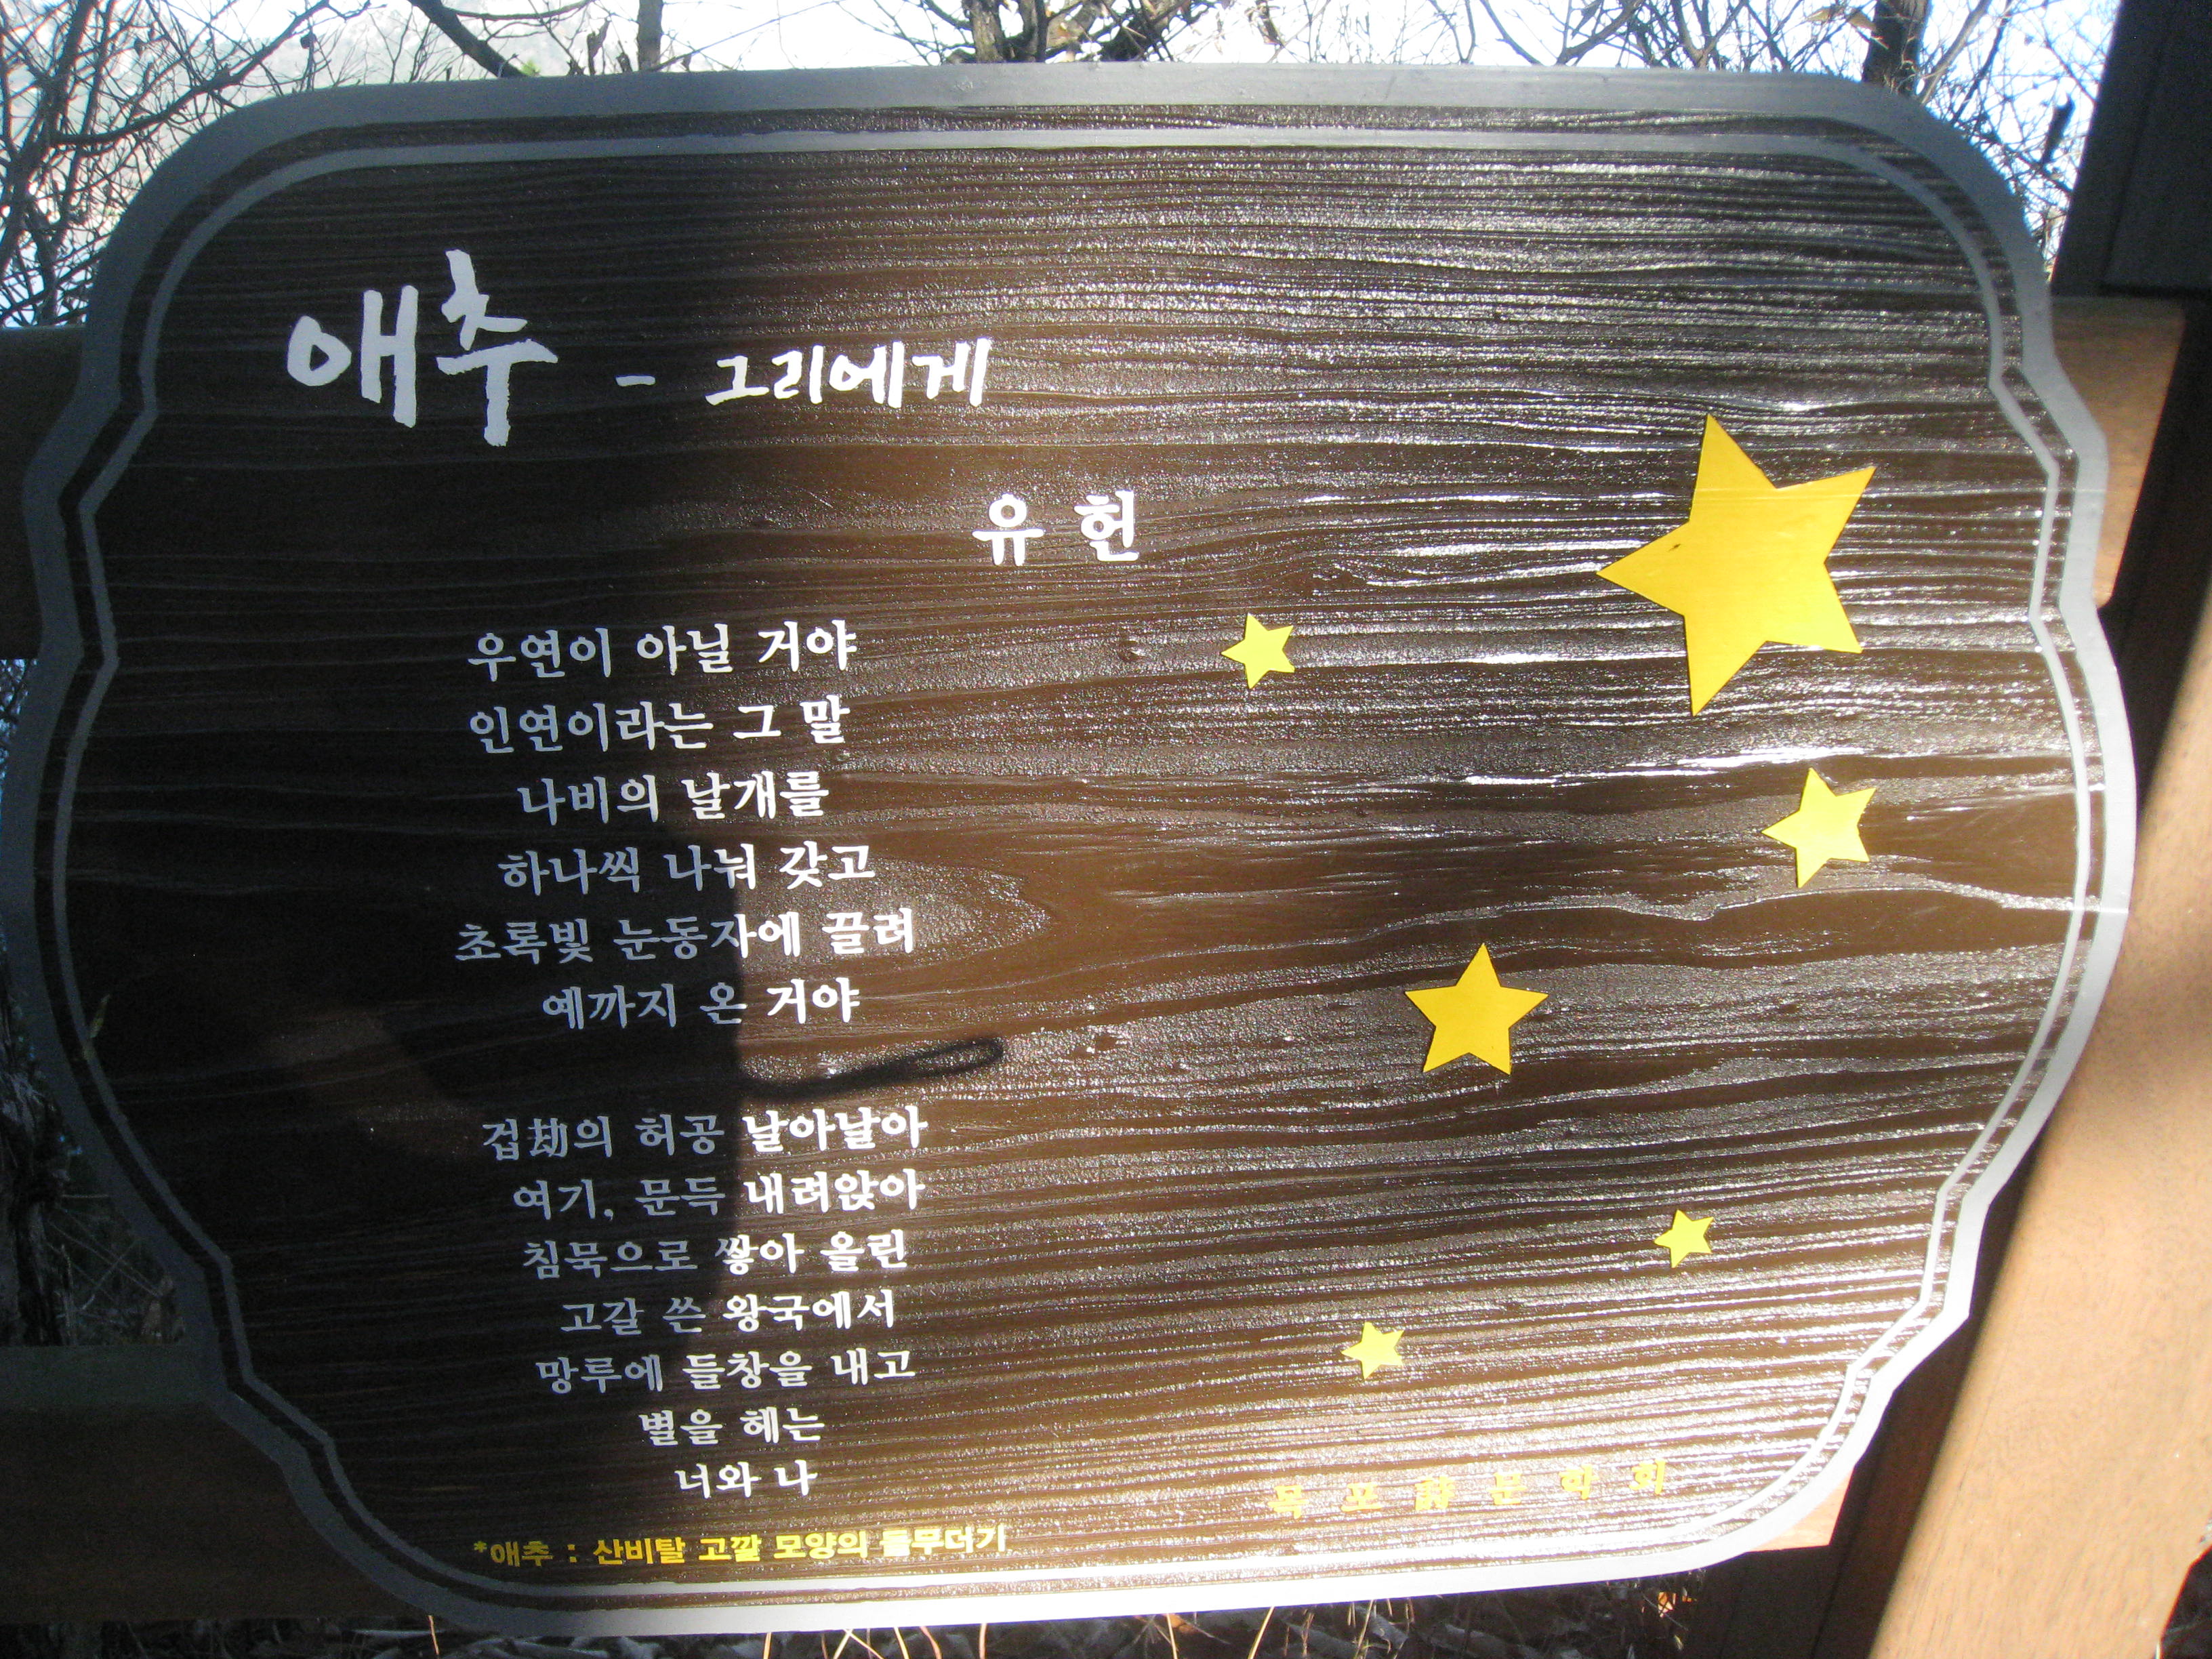 애추 - 그리에게
유 헌
우연이 아닐 거야
인연이라는 그 말
나비의 날개를
하나씩 나눠 갖고
초록빛 눈동자에 끌려
예까지 온 거야
겁劫의 허공 날아날아
여기, 문득 내려앉아
침묵으로 쌓아 올린
고갈 쓴 왕국에서
망루에 들창을 내고
별을 헤는
너와 나
목 포 詩 문 학 회
*애추 : 산비탈 고깔 모양의 돌무더기